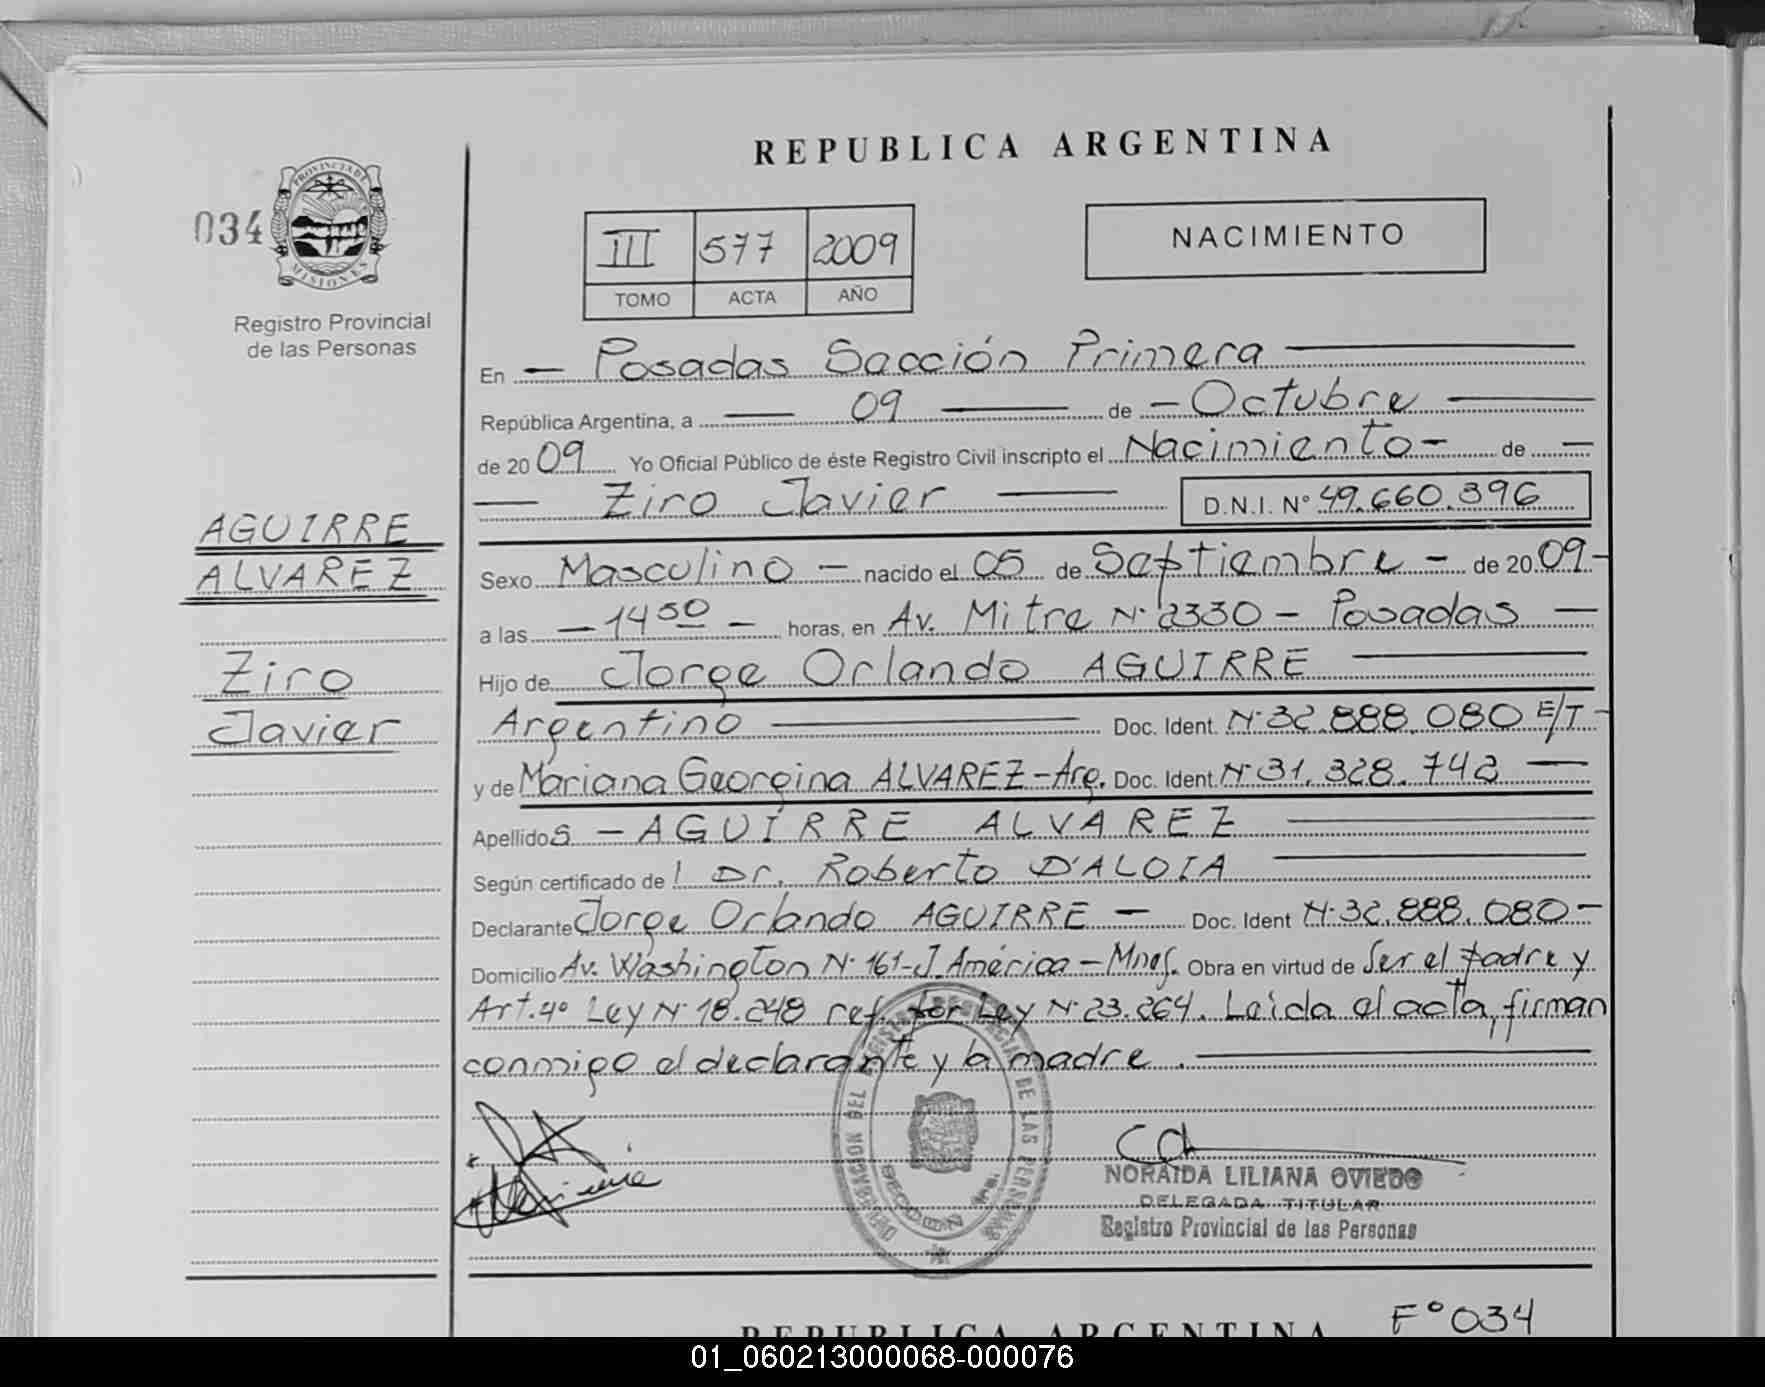 REPUBLICA ARGENTINA
034
PROVINCIA DE MISIONES
Registro Provincial
de las Personas
III 577 2009
TOMO ACTA AÑO
NACIMIENTO
En — Posadas Sección Primera —
República Argentina, a — 09 — de — Octubre —
de 20 09 Yo Oficial Público de éste Registro Civil inscripto el Nacimiento — de —
— Ziro Javier — D.N.I. Nº 49.660.396
AGUIRRE
ALVAREZ
Ziro
Javier
Sexo Masculino — nacido el 05 de Septiembre — de 20 09 —
a las — 14 50 — horas, en Av. Mitre Nº 2330 — Posadas —
Hijo de Jorge Orlando AGUIRRE —
Argentino — Doc. Ident. Nº 32.888.080 E/T —
y de Mariana Georgina ALVAREZ — Arg. Doc. Ident. Nº 31.328.742 —
Apellidos — AGUIRRE ALVAREZ —
Según certificado de l Dr. Roberto D'ALOIA —
Declarante Jorge Orlando AGUIRRE — Doc. Ident Nº 32.888.080 —
Domicilio Av. Washington Nº 161 - J. América — Mnes. Obra en virtud de Ser el padre y
Art. 4º Ley Nº 18.248 ref. por Ley Nº 23.264. Leída el acta, firman
conmigo el declarante y la madre. —
NORAIDA LILIANA OVIEDO
DELEGADA TITULAR
Registro Provincial de las Personas
Fº 034
REPUBLICA ARGENTINA
01_060213000068-000076